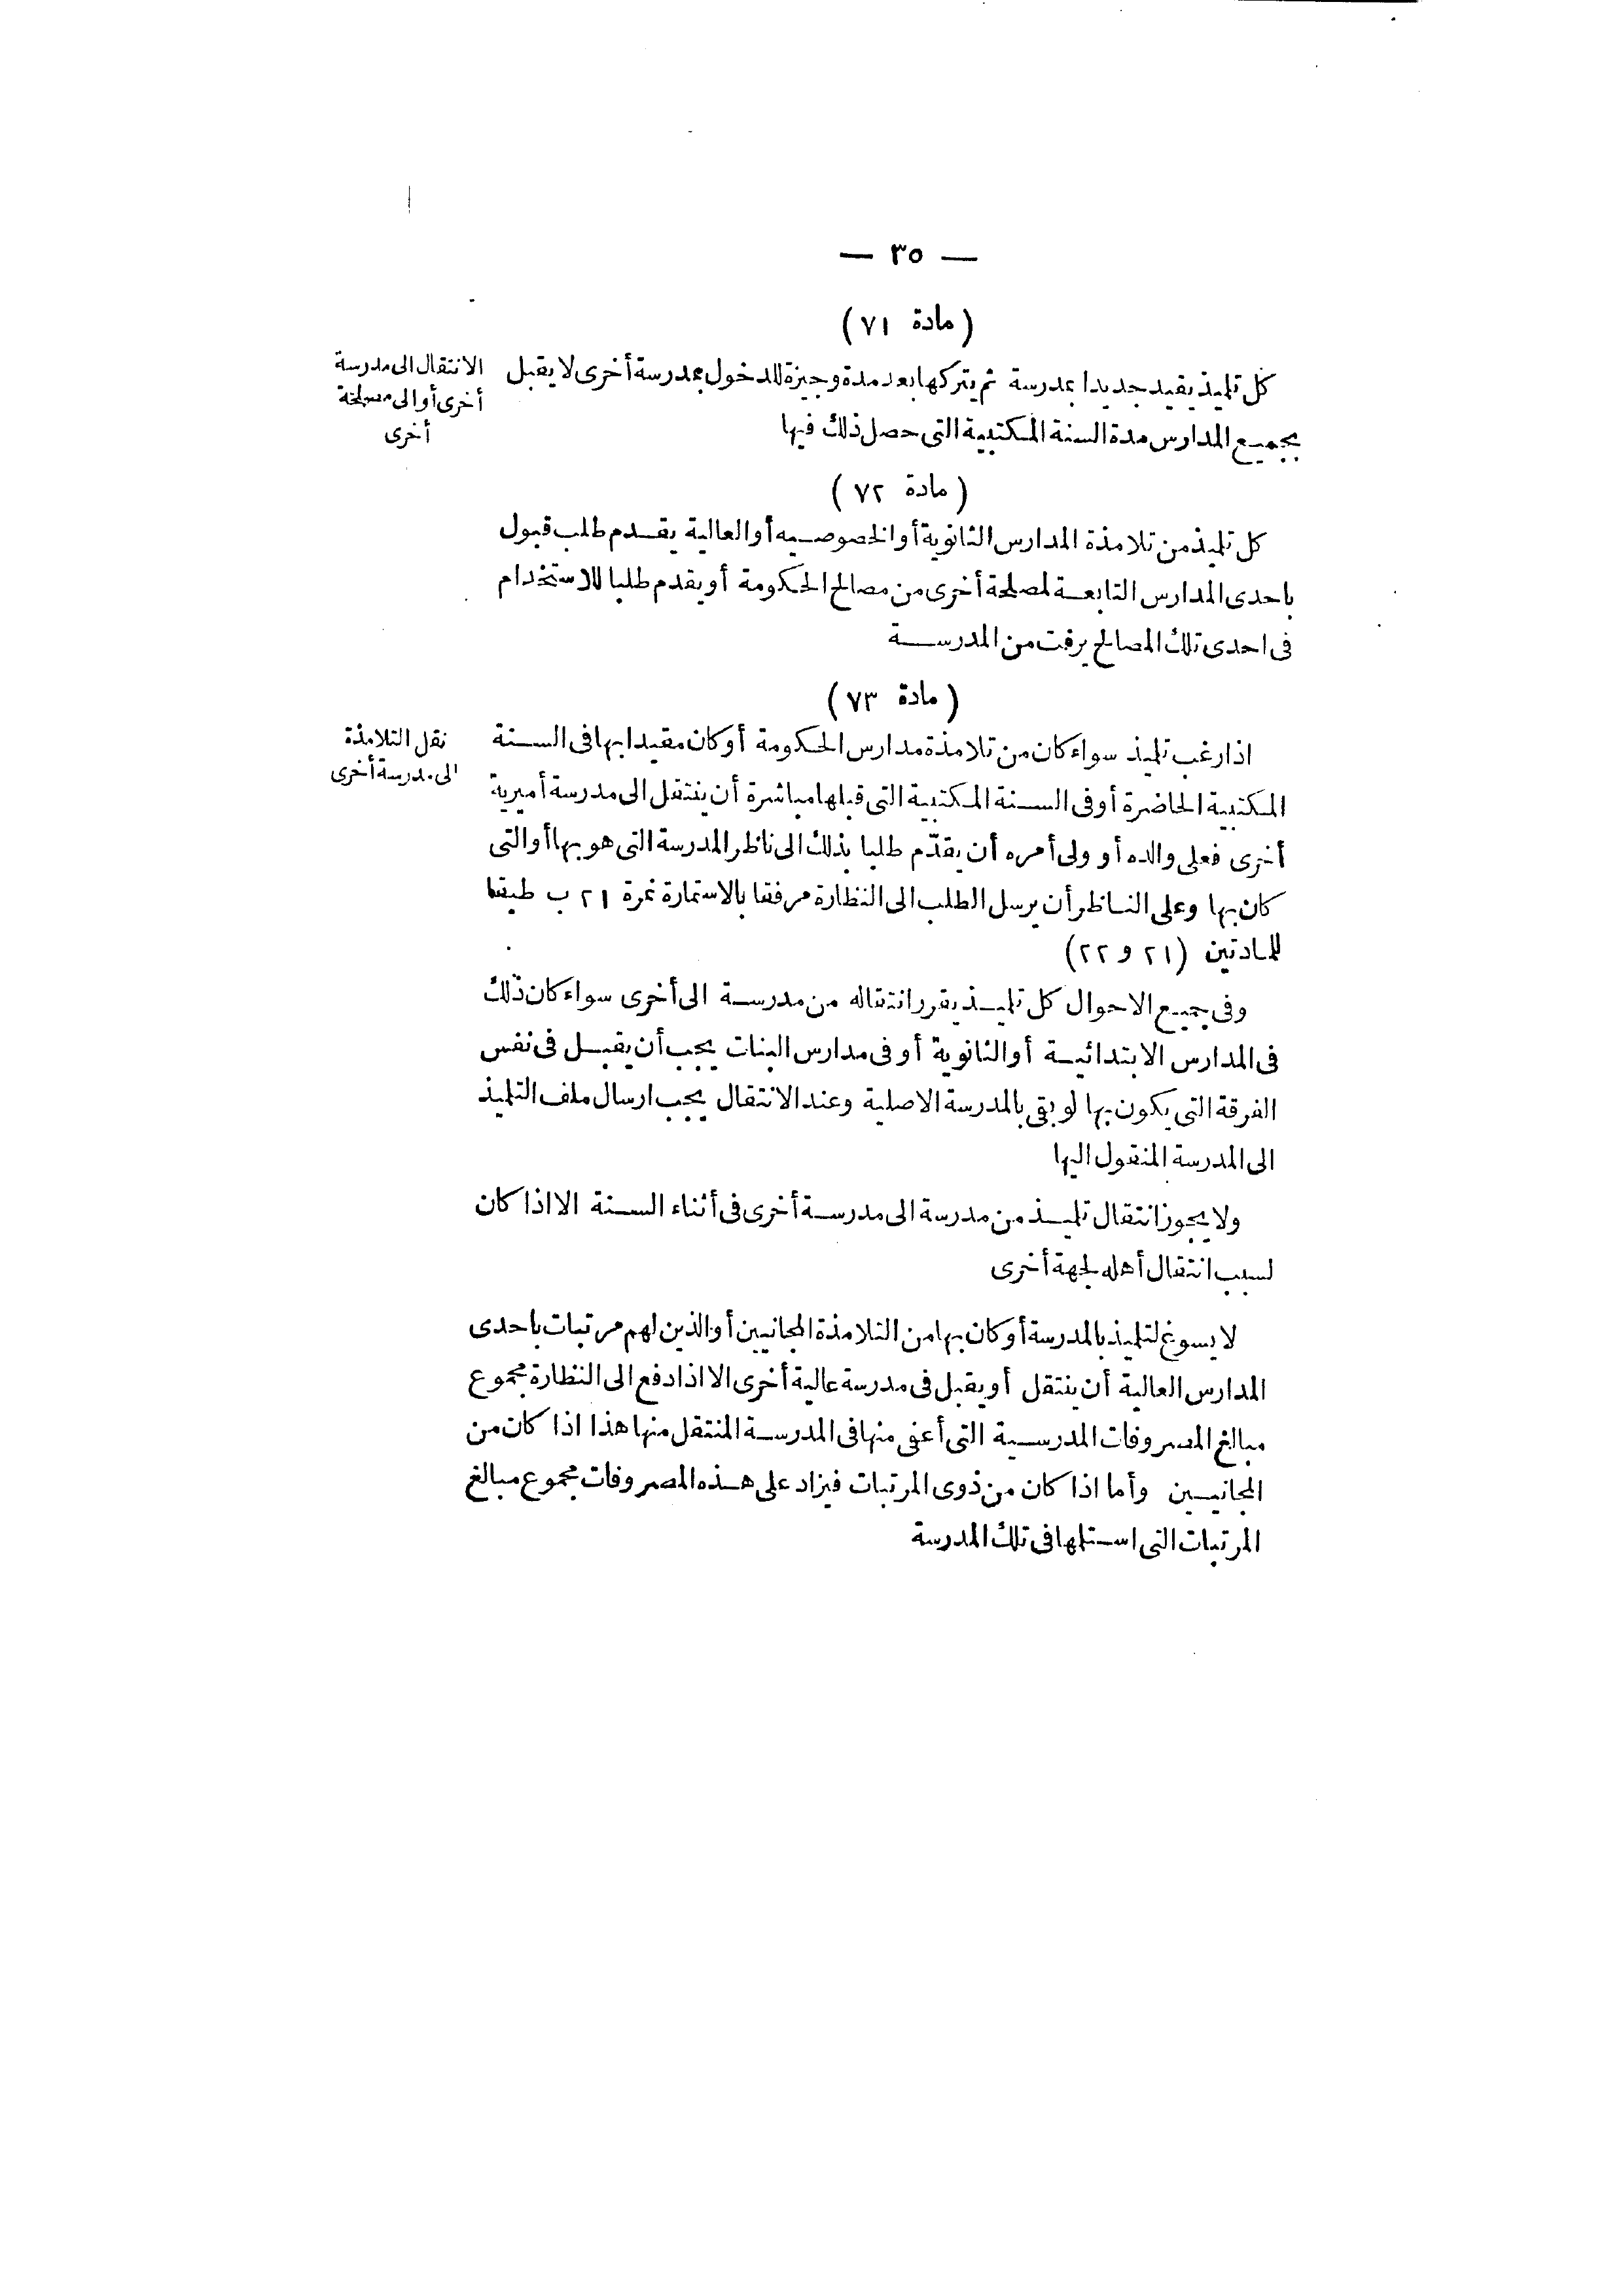 — ٣٥ —
(مادة ٧١)
الانتقال الى مدرسة
أخرى أو الى مصلحة
أخرى
كل تلميذ يقيد جديدا بمدرسة ثم يتركها بعد مدة وجيزة للدخول بمدرسة أخرى لا يقبل
بجميع المدارس مدة السنة المكتبية التى حصل ذلك فيها
(مادة ٧٢)
كل تلميذ من تلامذة المدارس الثانوية أو الخصوصيه أو العالية يقدم طلب قبول
باحدى المدارس التابعة لمصلحة أخرى من مصالح الحكومة أو يقدم طلبا للاستخدام
فى احدى تلك المصالح يرفت من المدرسة
(مادة ٧٣)
نقل التلامذة
الى مدرسة أخرى
اذا رغب تلميذ سواء كان من تلامذة مدارس الحكومة أو كان مقيدا بها فى السنة
المكتبية الحاضرة أو فى السنة المكتبية التى قبلها مباشرة أن ينتقل الى مدرسة أميرية
أخرى فعلى والده أو ولى أمره أن يقدّم طلبا بذلك الى ناظر المدرسة التى هو بها أو التى
كان بها وعلى الناظر أن يرسل الطلب الى النظارة مرفقا بالاستمارة نمرة ٢١ ب طبقا
للمادتين (٢١ و ٢٢)
وفى جميع الاحوال كل تلميذ يقرر انتقاله من مدرسة الى أخرى سواء كان ذلك
فى المدارس الابتدائية أو الثانوية أو فى مدارس البنات يجب أن يقبل فى نفس
الفرقة التى يكون بها لو بقى بالمدرسة الاصلية وعند الانتقال يجب ارسال ملف التلميذ
الى المدرسة المنقول اليها
ولا يجوز انتقال تلميذ من مدرسة الى مدرسة أخرى فى أثناء السنة الا اذا كان
لسبب انتقال أهله لجهة أخرى
لا يسوغ لتلميذ بالمدرسة أو كان بها من التلامذة المجانيين أو الذين لهم مرتبات باحدى
المدارس العالية أن ينتقل أو يقبل فى مدرسة عالية أخرى الا اذا دفع الى النظارة مجموع
مبالغ المصروفات المدرسية التى أعفى منها فى المدرسة المنتقل منها هذا اذا كان من
المجانيين وأما اذا كان من ذوى المرتبات فيزاد على هذه المصروفات مجموع مبالغ
المرتبات التى استلمها فى تلك المدرسة